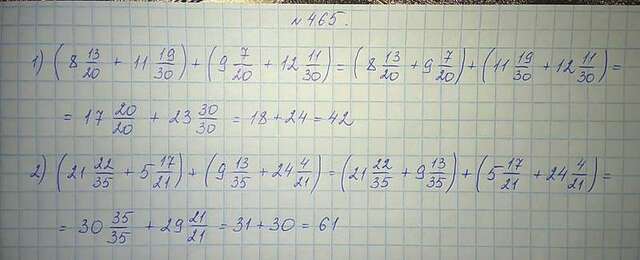 №465.
1) (8 13/20 + 11 19/30) + (9 7/20 + 12 11/30) = (8 13/20 + 9 7/20) + (11 19/30 + 12 11/30) =
= 17 20/20 + 23 30/30 = 18 + 24 = 42
2) (21 22/35 + 5 17/21) + (9 13/35 + 24 4/21) = (21 22/35 + 9 13/35) + (5 17/21 + 24 4/21) =
= 30 35/35 + 29 21/21 = 31 + 30 = 61